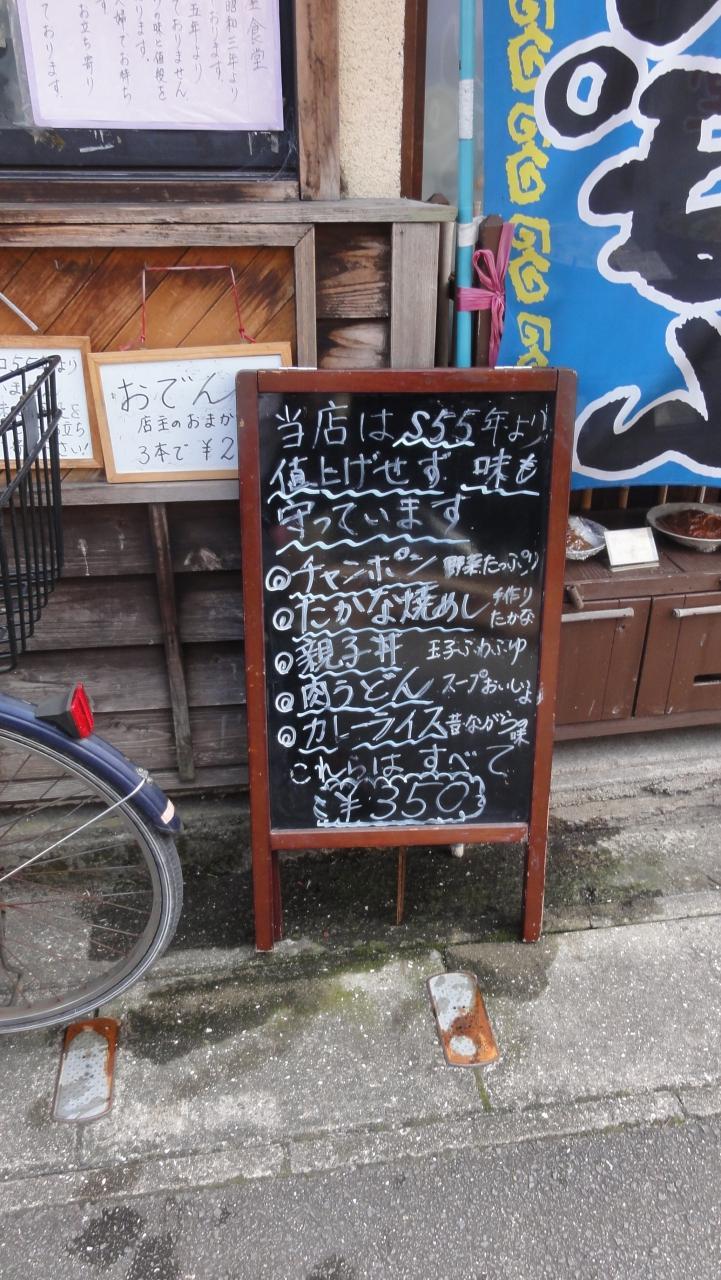 食堂
昭和三年より
五年より
ておりません
の味と値段を
ります。
婦でお待ち
お立ち寄り
ております。
S55年より
おでん
店主のおまか
3本で ¥2
当店は S55年より
値上げせず 味も
守っています
◎チャンポン 野菜たっぷり
◎たかな焼めし 手作りたかな
◎親子丼 玉子ふわふゆ
◎肉うどん スープおいしよ
◎カレーライス 昔ながらの味
これらは すべて
¥350